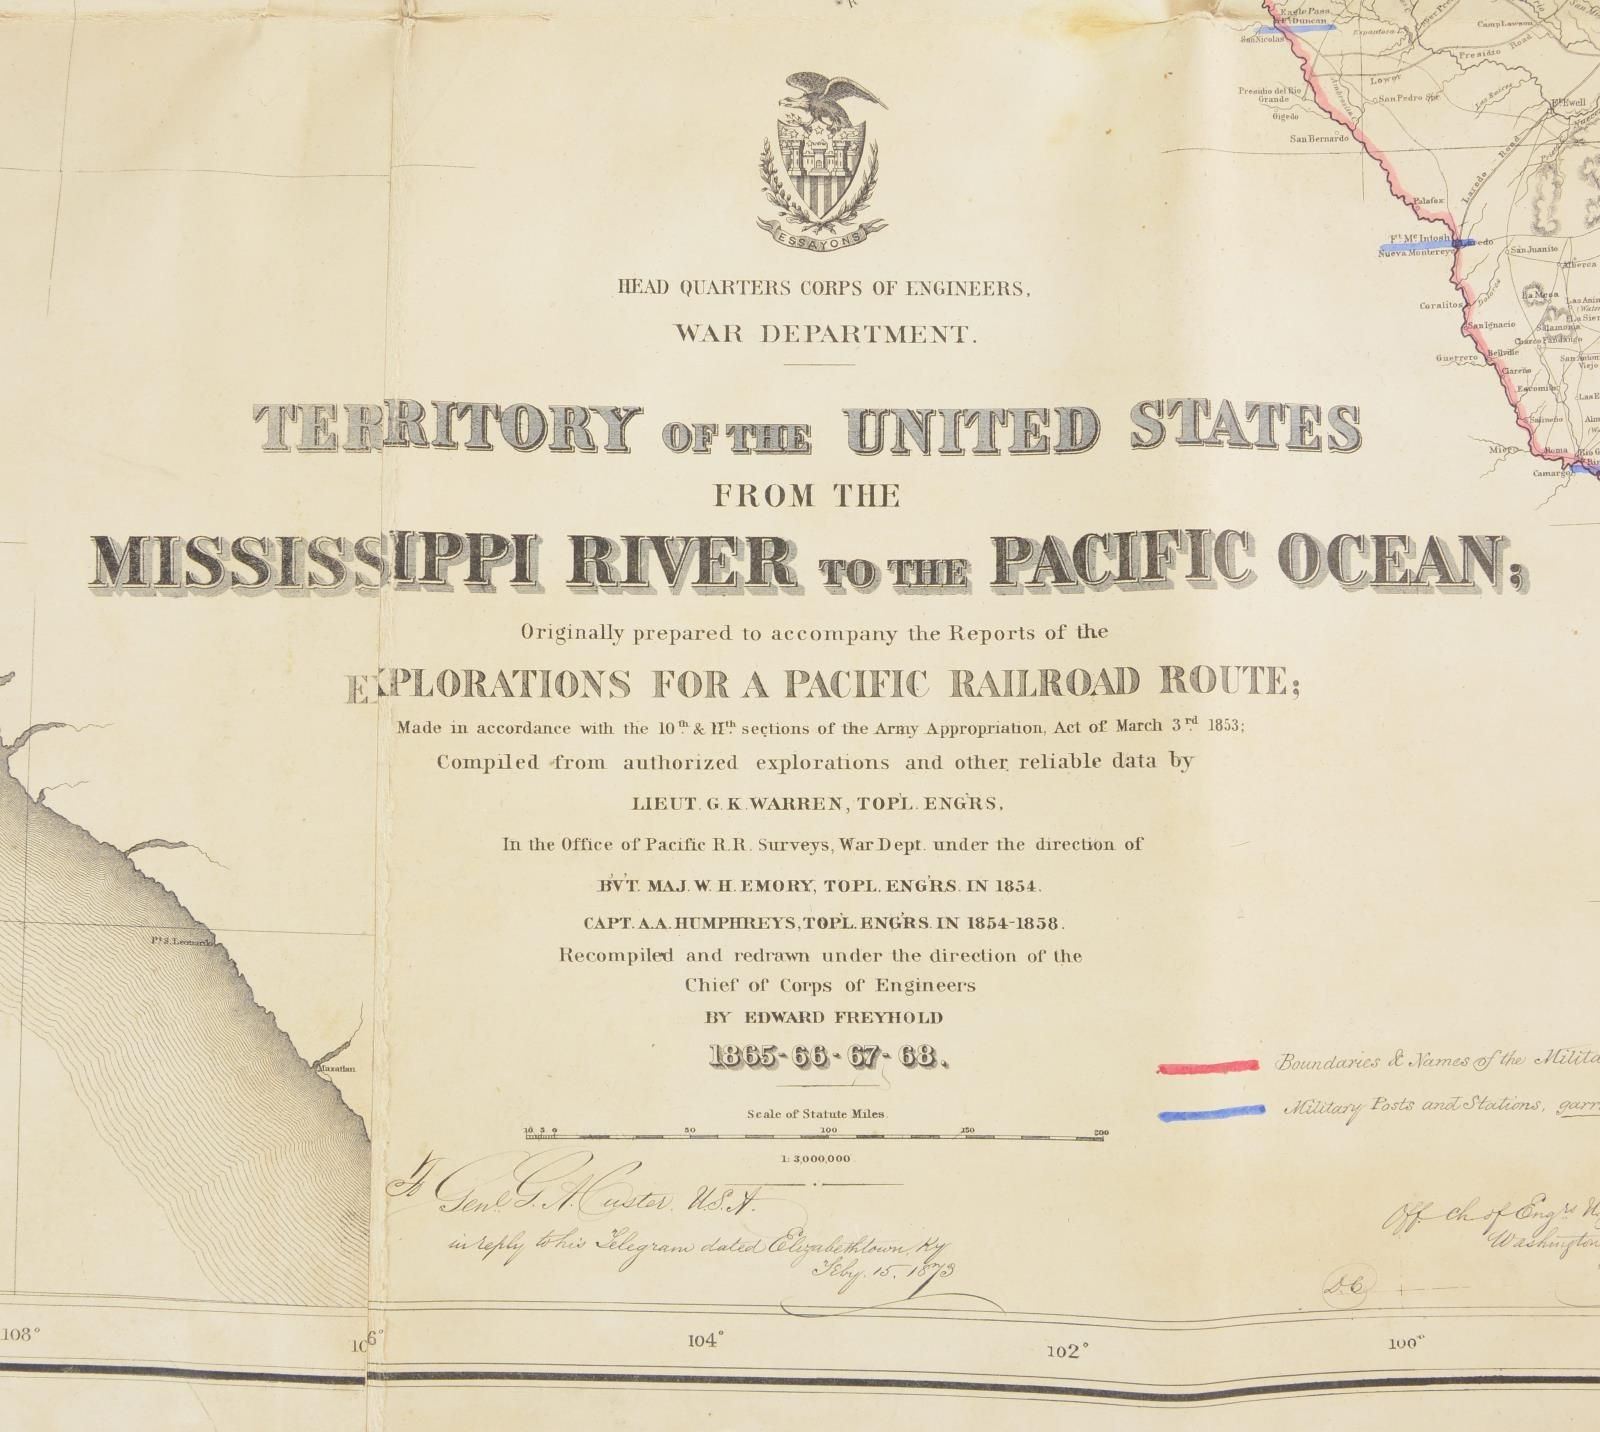 ESSAYONS
HEAD QUARTERS CORPS OF ENGINEERS,
WAR DEPARTMENT.
TERRITORY OF THE UNITED STATES
FROM THE
MISSISSIPPI RIVER TO THE PACIFIC OCEAN;
Originally prepared to accompany the Reports of the
EXPLORATIONS FOR A PACIFIC RAILROAD ROUTE;
Made in accordance with the 10th & 11th sections of the Army Appropriation, Act of March 3rd 1853;
Compiled from authorized explorations and other reliable data by
LIEUT. G. K. WARREN, TOPL. ENGRS,
In the Office of Pacific R.R. Surveys, War Dept. under the direction of
BVT. MAJ. W. H. EMORY, TOPL. ENGRS. IN 1854.
CAPT. A. A. HUMPHREYS, TOPL. ENGRS. IN 1854-1858.
Recompiled and redrawn under the direction of the
Chief of Corps of Engineers
BY EDWARD FREYHOLD
1865-66-67-68.
Scale of Statute Miles.
10 5 0 50 100 150 200
1:3,000,000
To Genl. G. A. Custer, U.S.A.
in reply to his Telegram dated Elizabethtown, Ky
Feby. 15. 1873
Boundaries & Names of the Milita
Military Posts and Stations, garr
Off. Ch of Engrs
Washington
D.C.
Eagle Pass
Ft Duncan
San Nicolas
Espantosa L.
Camp Lawson
Presidio Road
Lower
Presidio del Rio
Grande
San Pedro Spr.
Gigedo
San Bernardo
Las Raices
Ft Ewell
Laredo Road
Palafox
Ft Mc Intosh
Laredo
Nueva Monterey
San Juanito
Alberca
Coralitos
Dolores
La Mesa
San Ignacio
Salamonia
Charco Fandango
Guerrero
Bellville
Clareño
Viejo
Escomilo
Salineño
Mier
Roma
Camargo
Pt S. Leonardo
Mazatlan
108° 106° 104° 102° 100°